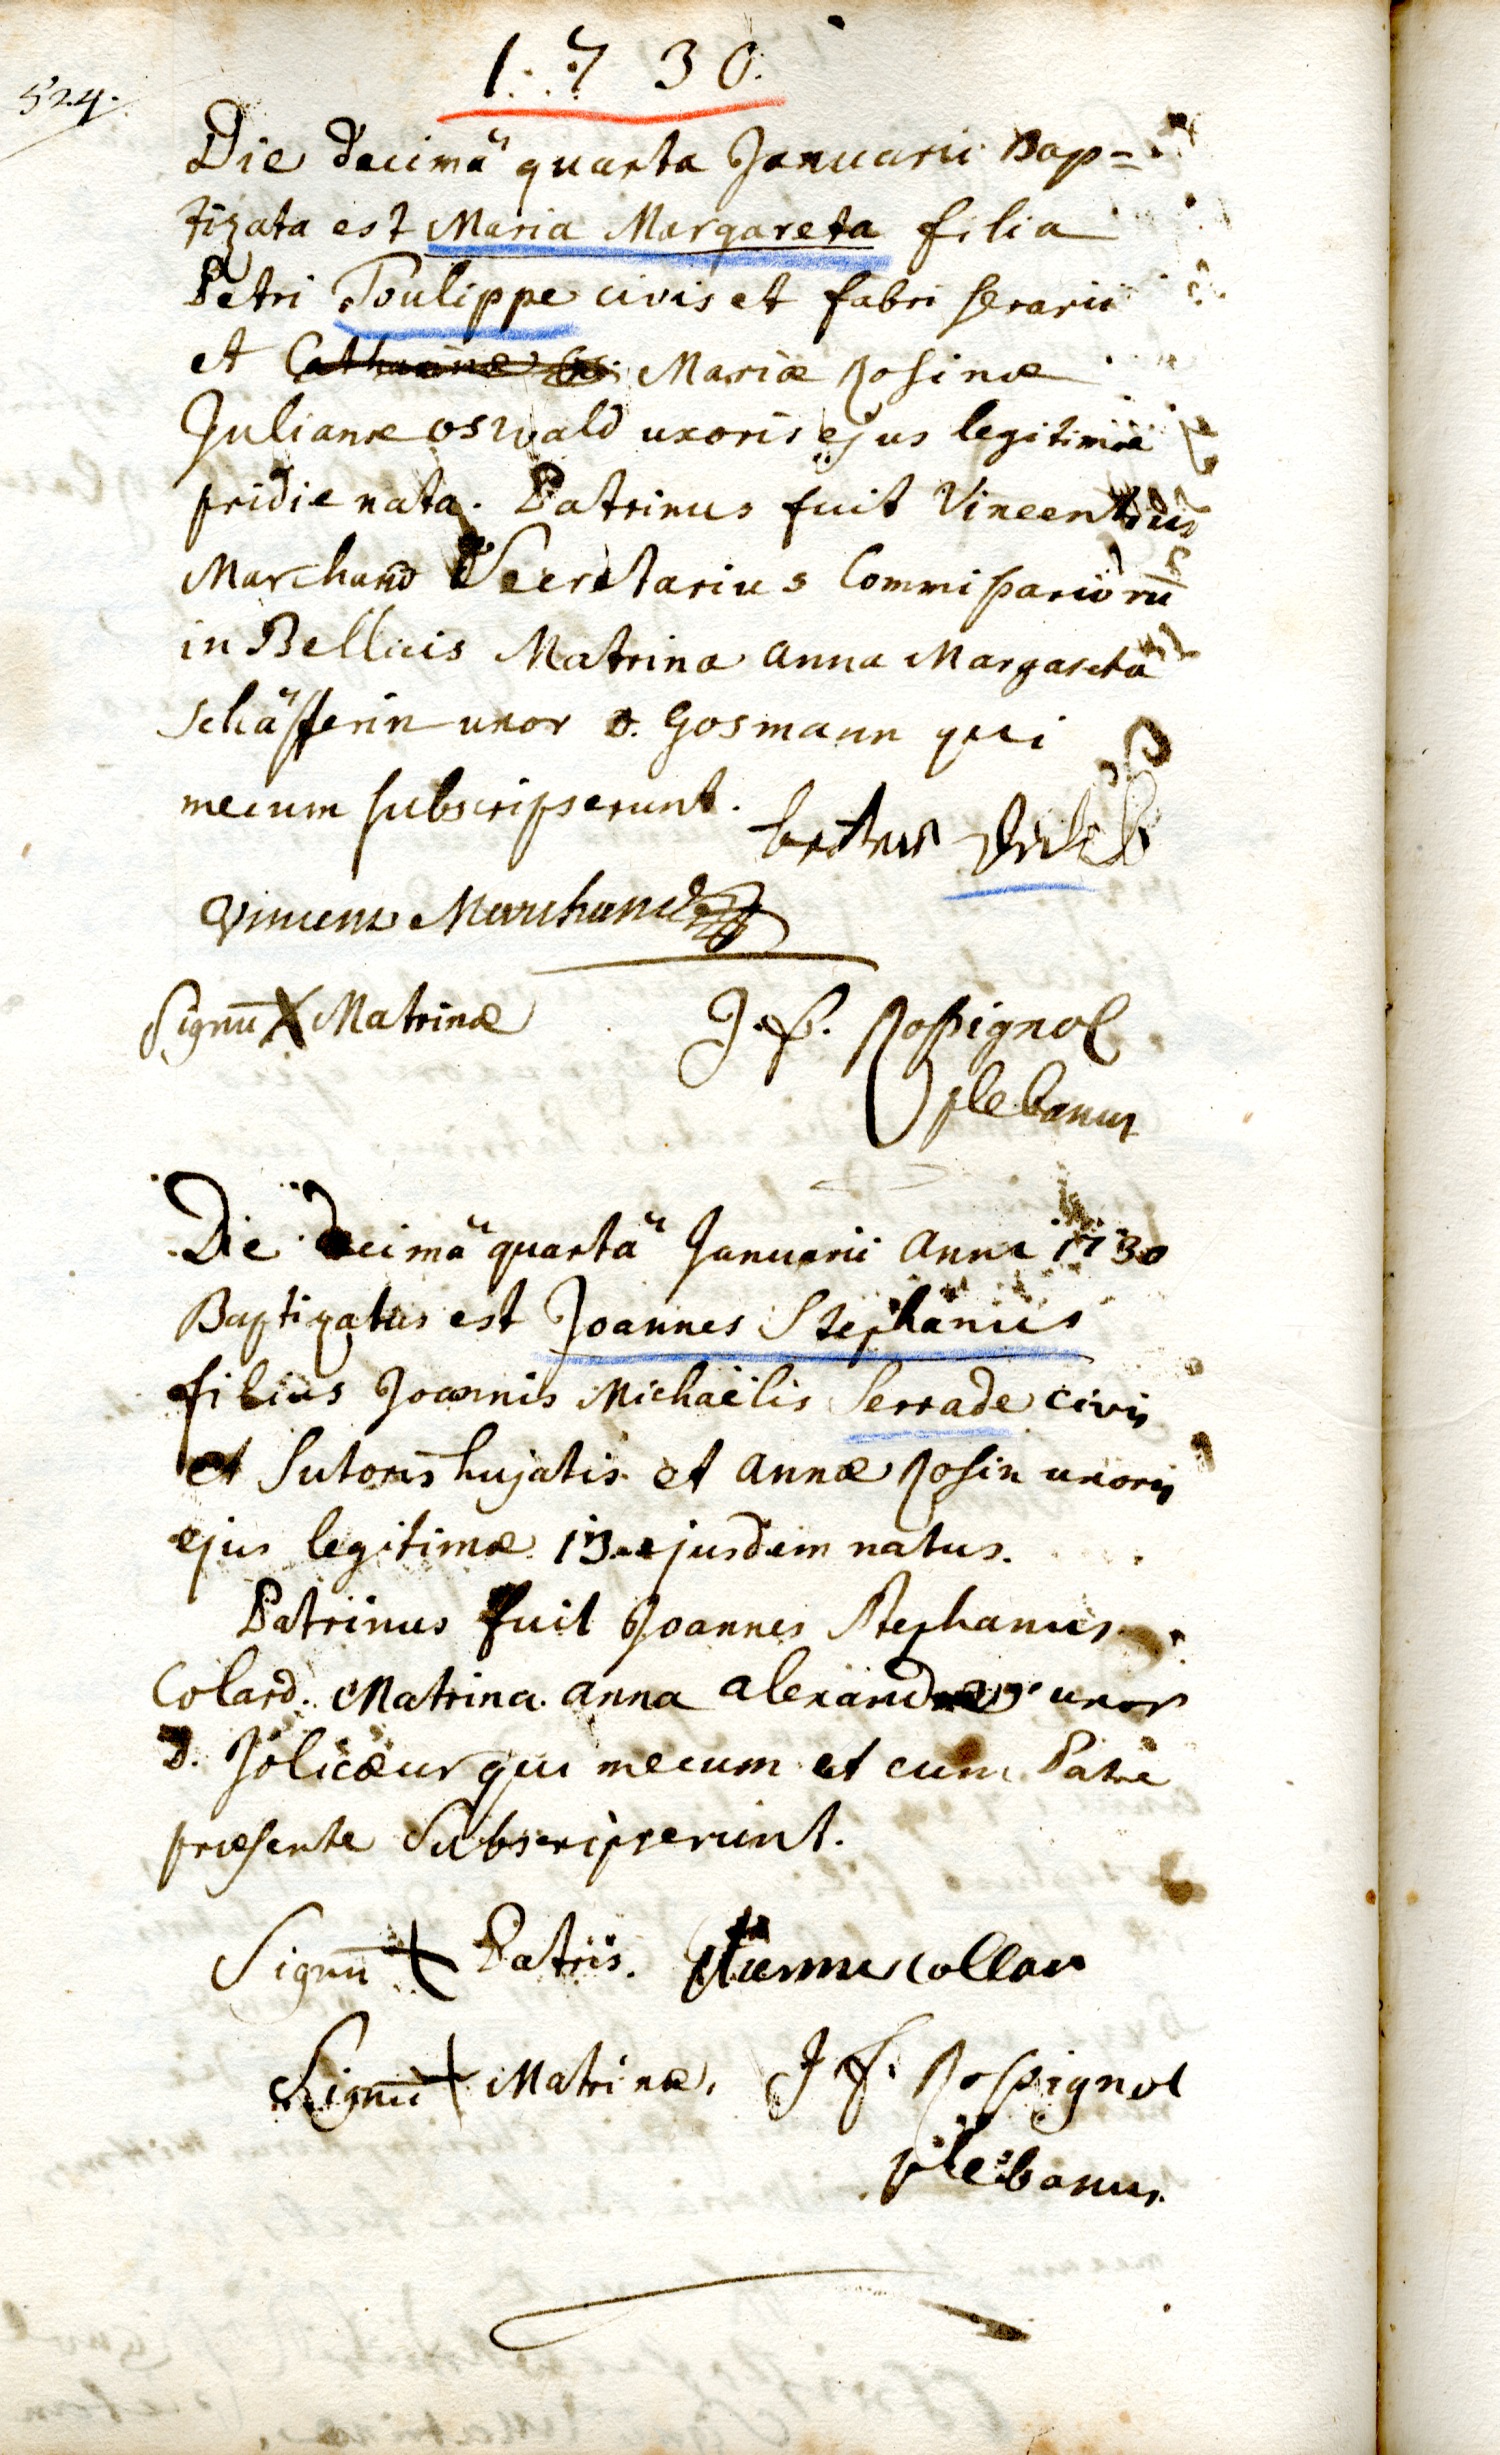 1730.
524.
Die decimâ quarta Januarii Bap=
tizata est Maria Margareta filia
Petri Toulippe civis et fabri serarii
et Catharinae Mariæ Rosinæ
Julianæ oswald uxoris ejus legitimæ
pridie nata. Patrinus fuit Vincentius
Marchand Secretarius Commissariorū
in Bellicis Matrina Anna Margareta
Schäfferin uxor D. Gosmann qui
mecum subscripserunt.
Vincent Marchand
Signū X Matrinæ
J. F. Rossignol
plebanus
Die decimâ quartâ Januarii Anni 1730
Baptizatus est Joannes Stephanus
filius Joannis Michaëlis Serrade civis
et Sutoris hujatis et Annæ Rosin uxoris
ejus legitimæ 13 ejusdem natus.
Patrinus fuit Joannes Stephanus
Colard. Matrina anna uxor
D. Jolicœur qui mecum et cum Patre
præsente Subscripserunt.
Signū + Patris. etienne collar
Signū + Matrinæ. J F. Rossignol
plebanus.